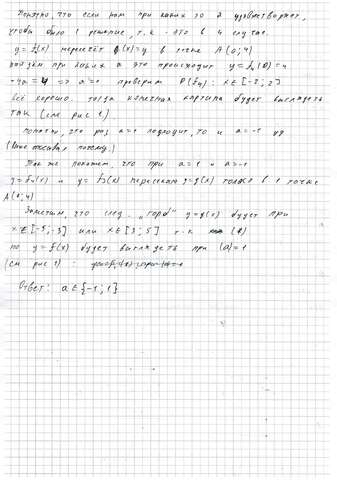 Понятно, что если нам при каких то a удовлетворяет,
чтобы было 1 решение, т.к. это в 4 случае.
y = f₄(x) пересечёт g(x)=y в точке A(0;4)
найдём при каких a это происходит y = f₄(0) = 4
=> a²=1 проверим D(f₄): x∈[-2;2]
всё хорошо. тогда конечная картина будет выглядеть
так (см рис 1).
понятно, что раз a=1 подходит, то и a=-1
(выше показал почему.)
Так же покажем, что при a=1 и a=-1
y=f₄(x) и y=f₃(x) пересекают y=g(x) только в 1 точке
A(0;4)
Заметим, что след. "горб" y=g(x) будет при
x∈[-5;-3] или x∈[3;5] т.к.
но y=f(x) будет выглядеть при |a|=1
(см рис 1) :
Ответ: a∈{-1;1}